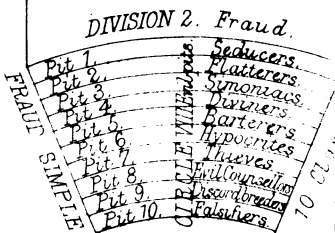 DIVISION 2. Fraud.
FRAUT SIMPLE
Pit 1. Seducers.
Pit 2. Flatterers.
Pit 3. Simoniacs
Pit 4. Diviners.
Pit 5. Barterers
Pit 6. Hypocrites
Pit 7. Thieves
Pit 8. Evil Counsellors
Pit 9. Discord breeders
Pit 10. Falsifiers.
CIRCLE NINE
10